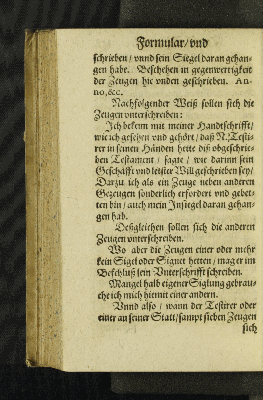 Formular/vnd
schrieben / vnnd sein Siegel daran gehan-
gen habe. Beschehen in gegenwertigkeit
der Zeugen hie vnden geschrieben. An-
no, &c.
Nachfolgender Weiß sollen sich die
Zeugen vnterschreiben:
Ich bekenn mit meiner Handtschrifft/
wie ich gesehen vnd gehört / daß N. Testi-
rer in seinen Händen heite diß obgeschrie-
ben Testament / sagte / wie darinn sein
Geschäfft vnd letster Will geschrieben sey/
Darzu ich als ein Zeuge neben anderen
Gezeugen sonderlich erfordert vnd gebet-
ten bin / auch mein Insiegel daran gehan-
gen hab.
Deßgleichen sollen sich die anderen
Zeugen vnterschreiben.
Wo aber die Zeugen einer oder mehr
kein Sigel oder Signet hetten / mag er im
Beschluß sein Vnterschrifft schreiben.
Mangel halb eigener Siglung gebrau-
che ich mich hiemit einer andern.
Vnnd also / wann der Testirer oder
einer an seiner Statt / sampt sieben Zeugen
sich